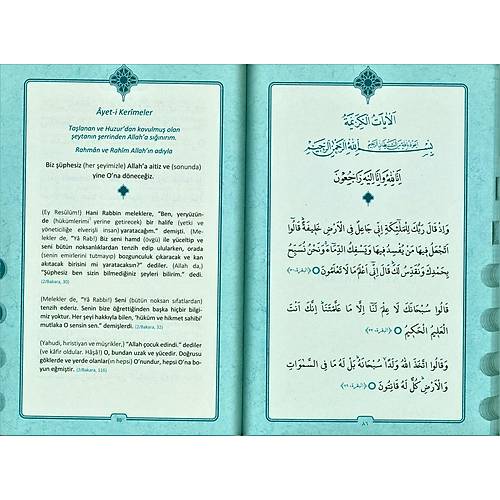 Âyet-i Kerîmeler
Taşlanan ve Huzur'dan kavulmuş olan
şeytanın şerrinden Allah'a sığınırım.
Rahmân ve Rahîm Allah'ın adıyla
Biz şüphesiz (her şeyimizle) Allah'a aitiz ve (sonunda)
yine O'na döneceğiz.
(Ey Resûlüm!) Hani Rabbin meleklere, "Ben, yeryüzün-
de (hükümlerimi yerine getirecek) bir halife (yetki ve
yöneticiliğe elverişli insan) yaratacağım." demişti. (Me-
lekler de, "Yâ Rab!) Biz seni hamd (övgü) ile yüceltip ve
seni bütün noksanlıklardan tenzih edip ulularken, orada
(senin emirlerini tutmayıp) bozgunculuk çıkaracak ve kan
akıtacak birisini mi yaratacaksın?" dediler. (Allah da,)
"Şüphesiz ben sizin bilmediğiniz şeyleri bilirim." dedi.
(2/Bakara, 30)
(Melekler de, "Yâ Rabbi!) Seni (bütün noksan sıfatlardan)
tenzih ederiz. Senin bize öğrettiğinden başka hiçbir bilgi-
miz yoktur. Her şeyi hakkıyla bilen, 'hüküm ve hikmet sahibi'
mutlaka O sensin sen." demişlerdi. (2/Bakara, 32)
(Yahudi, hıristiyan ve müşrikler,) "Allah çocuk edindi." dediler
(ve kâfir oldular. Hâşâ!) O, bundan uzak ve yücedir. Doğrusu
göklerde ve yerde olanlar(ın hepsi) O'nundur, hepsi O'na bo-
yun eğmiştir. (2/Bakara, 116)
الآيات الكريمة
بسم الله الرحمن الرحيم
إِنَّا لِلَّهِ وَإِنَّا إِلَيْهِ رَاجِعُونَ
وَإِذْ قَالَ رَبُّكَ لِلْمَلَٰئِكَةِ إِنِّي جَاعِلٌ فِي الْأَرْضِ خَلِيفَةً قَالُوا
أَتَجْعَلُ فِيهَا مَنْ يُفْسِدُ فِيهَا وَيَسْفِكُ الدِّمَاءَ وَنَحْنُ نُسَبِّحُ
بِحَمْدِكَ وَنُقَدِّسُ لَكَ قَالَ إِنِّي أَعْلَمُ مَا لَا تَعْلَمُونَ (البقرة، ٣٠)
قَالُوا سُبْحَانَكَ لَا عِلْمَ لَنَا إِلَّا مَا عَلَّمْتَنَا إِنَّكَ أَنْتَ
الْعَلِيمُ الْحَكِيمُ (البقرة، ٣٢)
وَقَالُوا اتَّخَذَ اللَّهُ وَلَدًا سُبْحَانَهُ بَلْ لَهُ مَا فِي السَّمَوَاتِ
وَالْأَرْضِ كُلٌّ لَهُ قَانِتُونَ